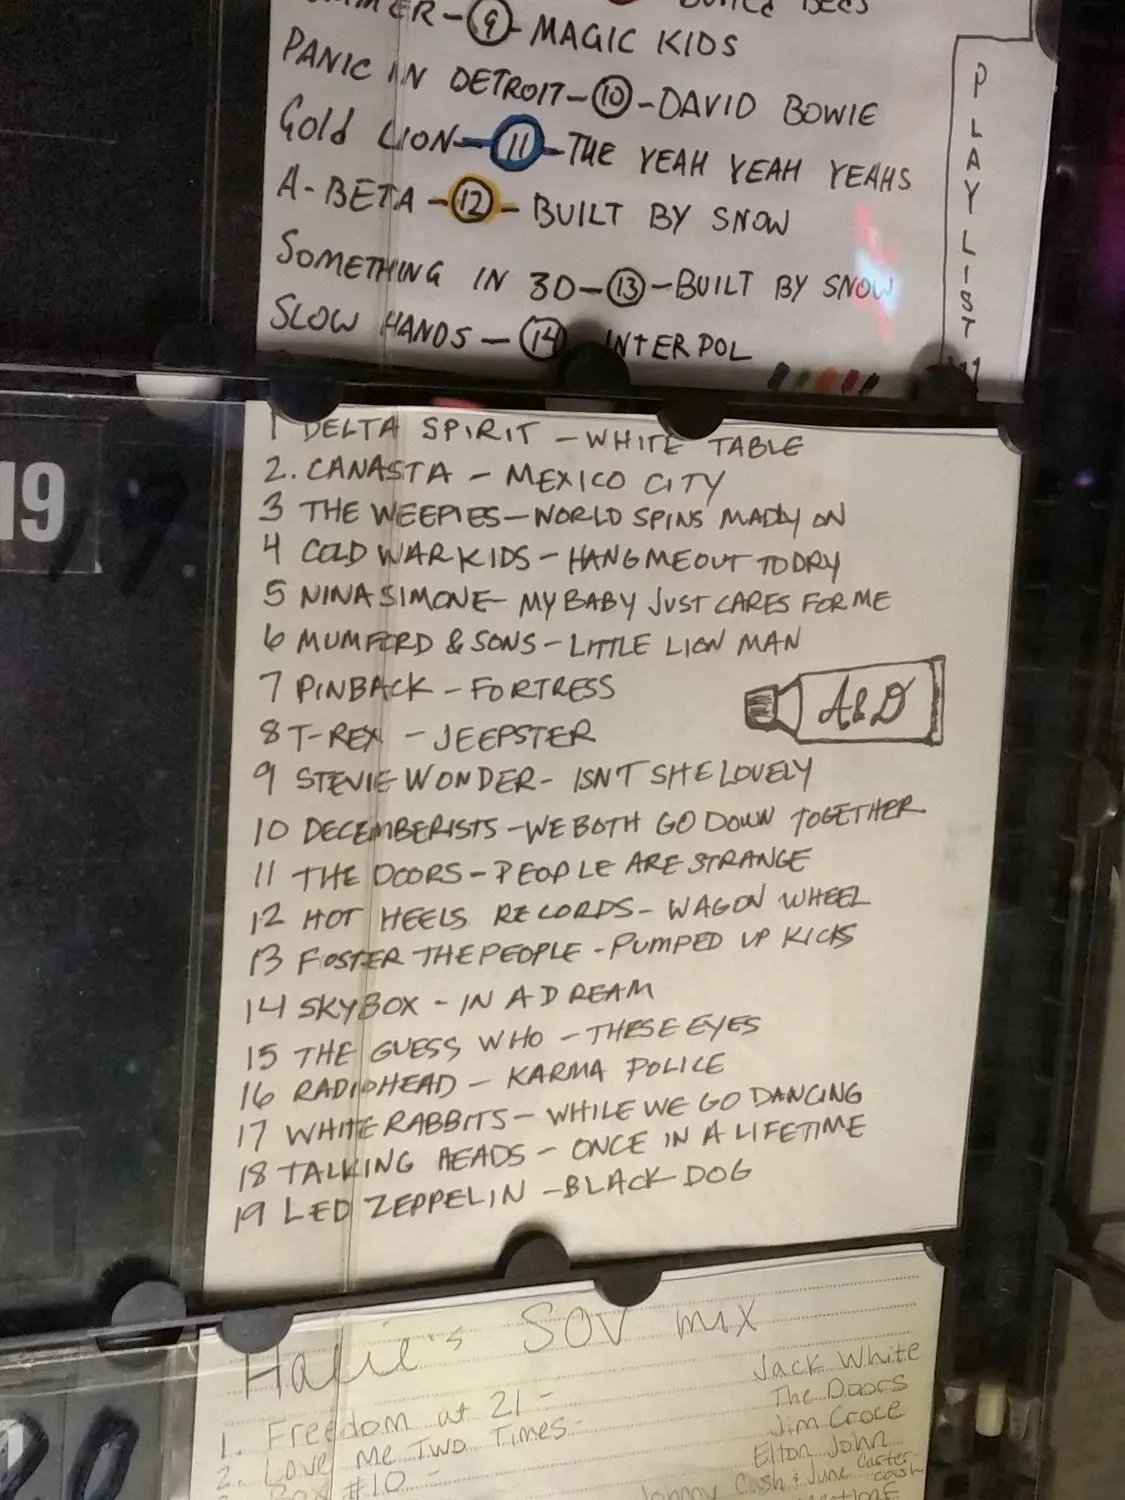 MER-9-MAGIC KIDS
PANIC IN DETROIT-10-DAVID BOWIE
Gold LION-11-THE YEAH YEAH YEAHS
A-BETA-12-BUILT BY SNOW
SOMETHING IN 3D-13-BUILT BY SNOW
SLOW HANDS-14 INTERPOL
PLAYLIST
19
1 DELTA SPIRIT - WHITE TABLE
2. CANASTA - MEXICO CITY
3 THE WEEPIES - WORLD SPINS MADLY ON
4 COLD WAR KIDS - HANG ME OUT TO DRY
5 NINA SIMONE - MY BABY JUST CARES FOR ME
6 MUMFORD & SONS - LITTLE LION MAN
7 PINBACK - FORTRESS
A&D
8 T-REX - JEEPSTER
9 STEVIE WONDER - ISN'T SHE LOVELY
10 DECEMBERISTS - WE BOTH GO DOWN TOGETHER
11 THE DOORS - PEOPLE ARE STRANGE
12 HOT HEELS RECORDS - WAGON WHEEL
13 FOSTER THE PEOPLE - PUMPED UP KICKS
14 SKYBOX - IN A DREAM
15 THE GUESS WHO - THESE EYES
16 RADIOHEAD - KARMA POLICE
17 WHITE RABBITS - WHILE WE GO DANCING
18 TALKING HEADS - ONCE IN A LIFETIME
19 LED ZEPPELIN - BLACK DOG
SOV mix
1. Freedom at 21 - Jack White
2. Love me Two Times - The Doors
Box #10 - Jim Croce
Elton John
Johnny Cash & June Carter Cash